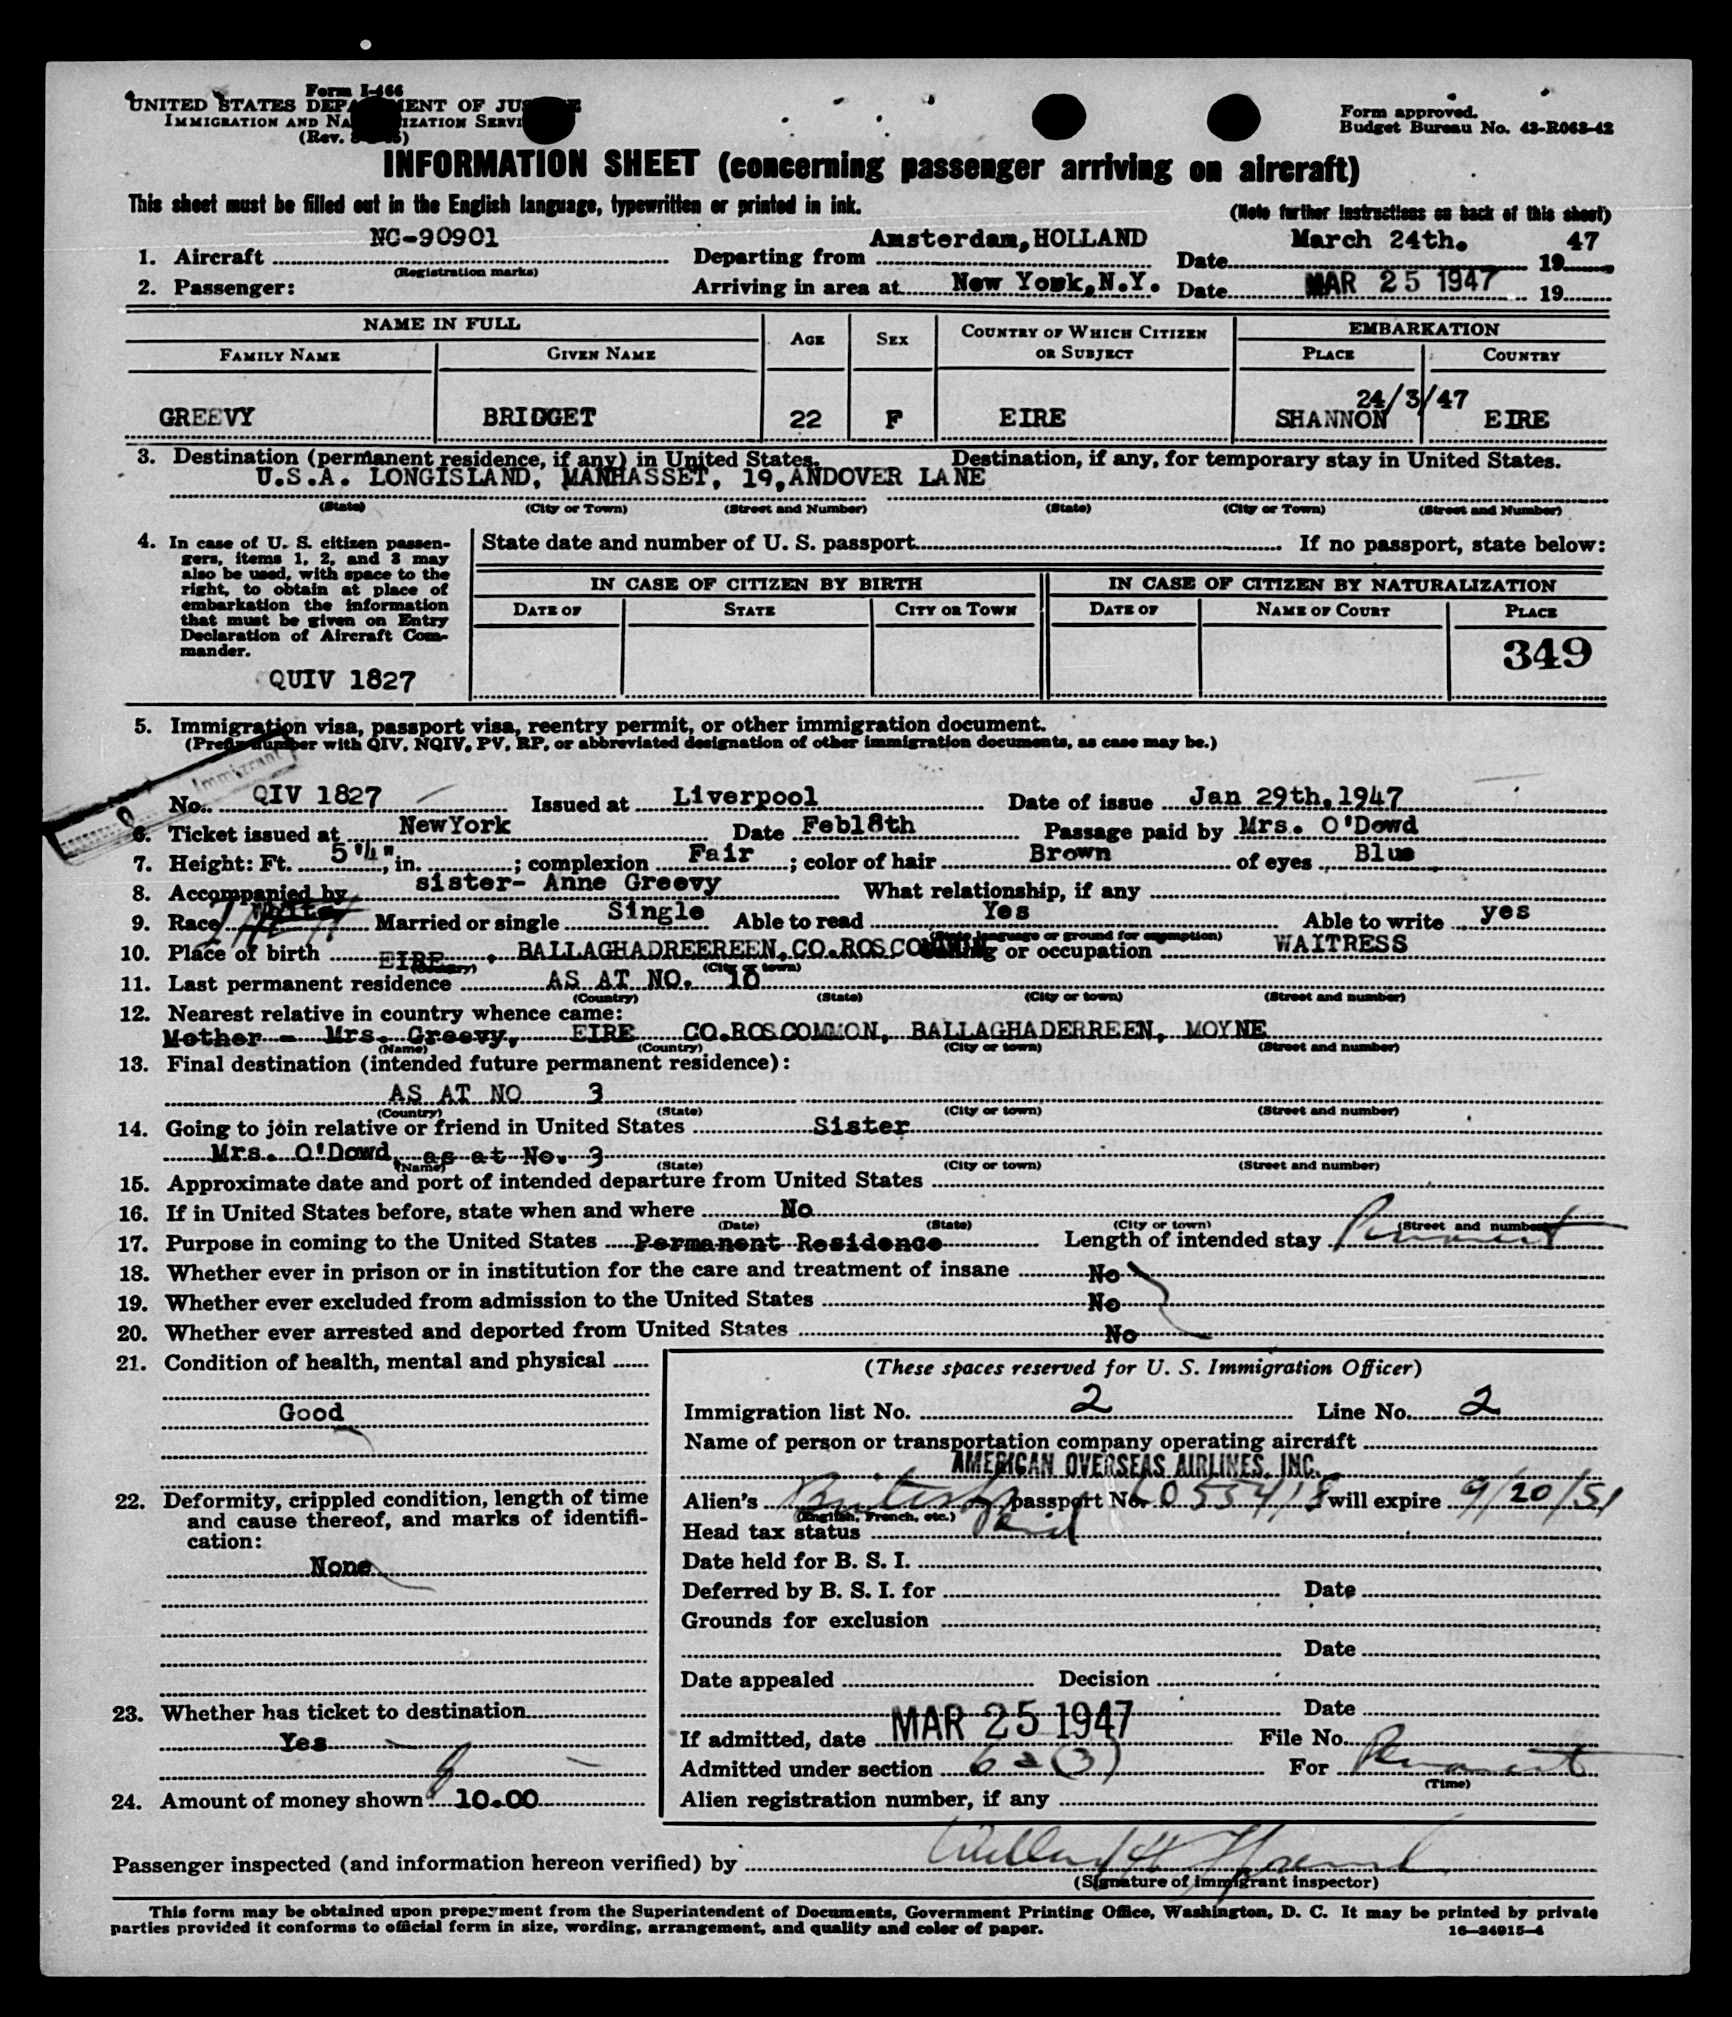 Form I-466
UNITED STATES DEPARTMENT OF JUSTICE
IMMIGRATION AND NATURALIZATION SERVICE
(Rev.
Form approved.
Budget Bureau No. 43-R063-42
INFORMATION SHEET (concerning passenger arriving on aircraft)
This sheet must be filled out in the English language, typewritten or printed in ink.
(Note further instructions on back of this sheet)
1. Aircraft NC-90901 Departing from Amsterdam, HOLLAND Date March 24th. 1947
(Registration marks)
2. Passenger: Arriving in area at New York, N.Y. Date MAR 25 1947 19
NAME IN FULL AGE SEX COUNTRY OF WHICH CITIZEN OR SUBJECT EMBARKATION
FAMILY NAME GIVEN NAME PLACE COUNTRY
24/3/47
GREEVY BRIDGET 22 F EIRE SHANNON EIRE
3. Destination (permanent residence, if any) in United States. Destination, if any, for temporary stay in United States.
U.S.A. LONGISLAND, MANHASSET, 19, ANDOVER LANE
(State) (City or Town) (Street and Number) (State) (City or Town) (Street and Number)
4. In case of U. S. citizen passen-
gers, items 1, 2, and 3 may
also be used, with space to the
right, to obtain at place of
embarkation the information
that must be given on Entry
Declaration of Aircraft Com-
mander.
QUIV 1827
State date and number of U. S. passport If no passport, state below:
IN CASE OF CITIZEN BY BIRTH IN CASE OF CITIZEN BY NATURALIZATION
DATE OF STATE CITY OR TOWN DATE OF NAME OF COURT PLACE
349
5. Immigration visa, passport visa, reentry permit, or other immigration document.
(Prefix number with QIV, NQIV, PV, RP, or abbreviated designation of other immigration documents, as case may be.)
Immigrant
No. QIV 1827 Issued at Liverpool Date of issue Jan 29th, 1947
6. Ticket issued at NewYork Date Feb18th Passage paid by Mrs. O'Dowd
7. Height: Ft. 5'4", in. ; complexion Fair ; color of hair Brown of eyes Blue
8. Accompanied by sister- Anne Greevy What relationship, if any
9. Race White Married or single Single Able to read Yes Able to write yes
(State language or ground for exemption)
10. Place of birth EIRE , BALLAGHADREEREEN, CO.ROSCOMMON or occupation WAITRESS
(Country) (City or town)
11. Last permanent residence AS AT NO. 10
(Country) (State) (City or town) (Street and number)
12. Nearest relative in country whence came:
Mother - Mrs. Greevy, EIRE CO.ROSCOMMON, BALLAGHADERREEN, MOYNE
(Name) (Country) (City or town) (Street and number)
13. Final destination (intended future permanent residence):
AS AT NO 3
(Country) (State) (City or town) (Street and number)
14. Going to join relative or friend in United States Sister
Mrs. O'Dowd, as at No. 3
(Name) (State) (City or town) (Street and number)
15. Approximate date and port of intended departure from United States
16. If in United States before, state when and where No
(Date) (State) (City or town) (Street and number)
17. Purpose in coming to the United States Permanent Residence Length of intended stay Permanent
18. Whether ever in prison or in institution for the care and treatment of insane No
19. Whether ever excluded from admission to the United States No
20. Whether ever arrested and deported from United States No
21. Condition of health, mental and physical
Good
22. Deformity, crippled condition, length of time
and cause thereof, and marks of identifi-
cation:
None
23. Whether has ticket to destination
Yes
24. Amount of money shown 10.00
(These spaces reserved for U. S. Immigration Officer)
Immigration list No. 2 Line No. 2
Name of person or transportation company operating aircraft
AMERICAN OVERSEAS AIRLINES, INC.
Alien's British passport No. will expire 9/20/51
(English, French, etc.)
Head tax status Paid
Date held for B. S. I.
Deferred by B. S. I. for Date
Grounds for exclusion
Date
Date appealed Decision
Date
If admitted, date MAR 25 1947 File No.
Admitted under section 6 a (3) For Permanent
(Time)
Alien registration number, if any
Passenger inspected (and information hereon verified) by
(Signature of immigrant inspector)
This form may be obtained upon prepayment from the Superintendent of Documents, Government Printing Office, Washington, D. C. It may be printed by private
parties provided it conforms to official form in size, wording, arrangement, and quality and color of paper. 16—24915-4